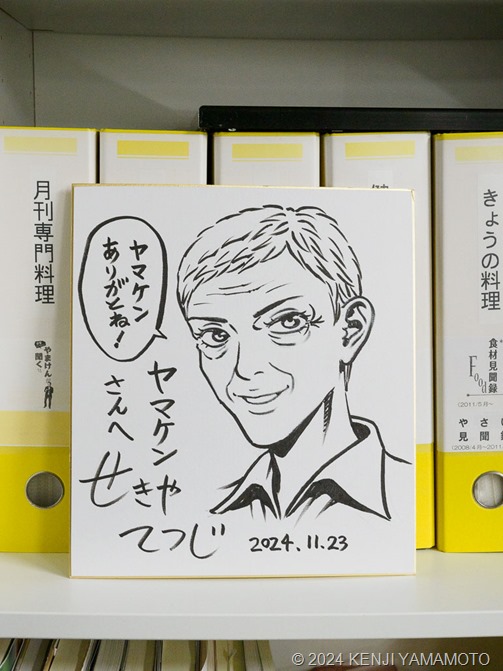 月刊専門料理
やまけんが
聞く
ヤマケン
ありがとね!
ヤマケン
さんへ
せきや
てつじ
2024.11.23
きょうの料理
食材見聞録
Food
(2011/5月~
やさい
見聞録
© 2024 KENJI YAMAMOTO